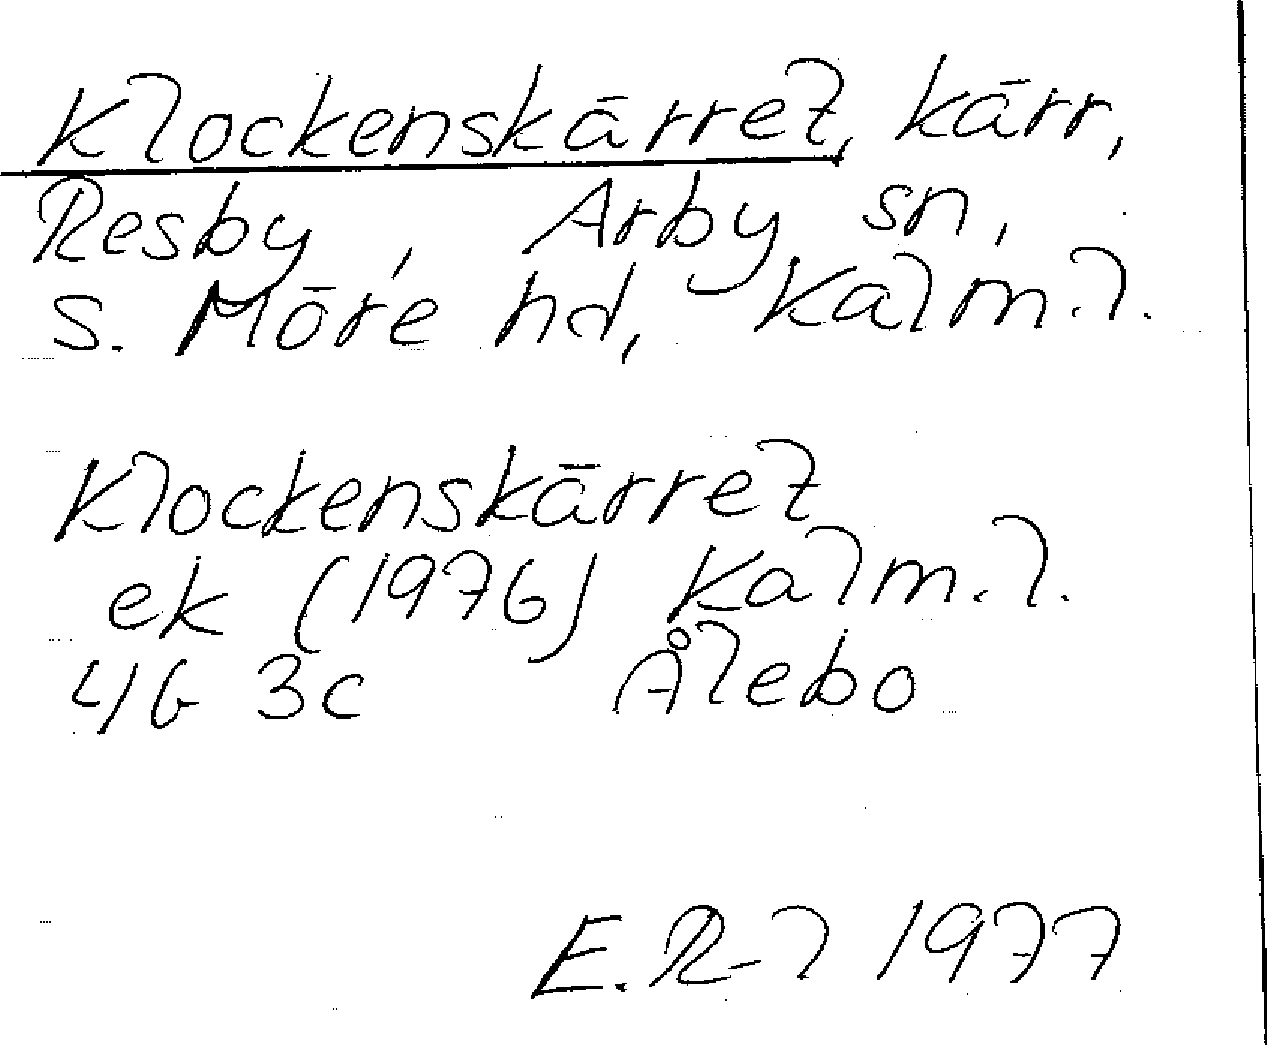 Klockenskärret, kärr,
Resby, Arby sn,
S. Möre hd, Kalm.l.
Klockenskärret
ek (1976) Kalm.l.
4G 3c Ålebo
E. R-l 1977